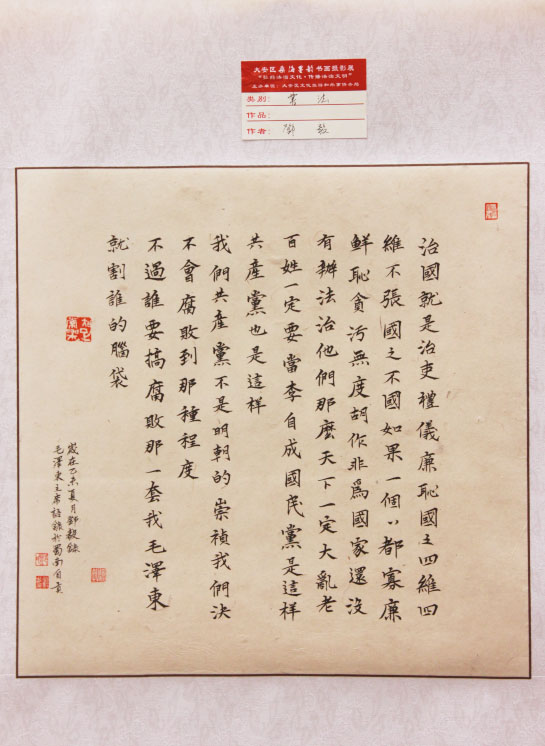 大安区 海墨韵书画摄影展
类别：書法
作品：
作者：鄧毅
治國就是治吏禮儀廉恥國之四維四
維不張國之不國如果一個〻都寡廉
鮮恥貪污無度胡作非爲國家還沒
有辦法治他們那麼天下一定大亂老
百姓一定要當李自成國民黨是這樣
共產黨也是這樣
我們共產黨不是明朝的崇禎我們決
不會腐敗到那種程度
不過誰要搞腐敗那一套我毛澤東
就割誰的腦袋
歲在乙未夏月鄧毅錄
毛澤東主席語錄於蜀南自貢